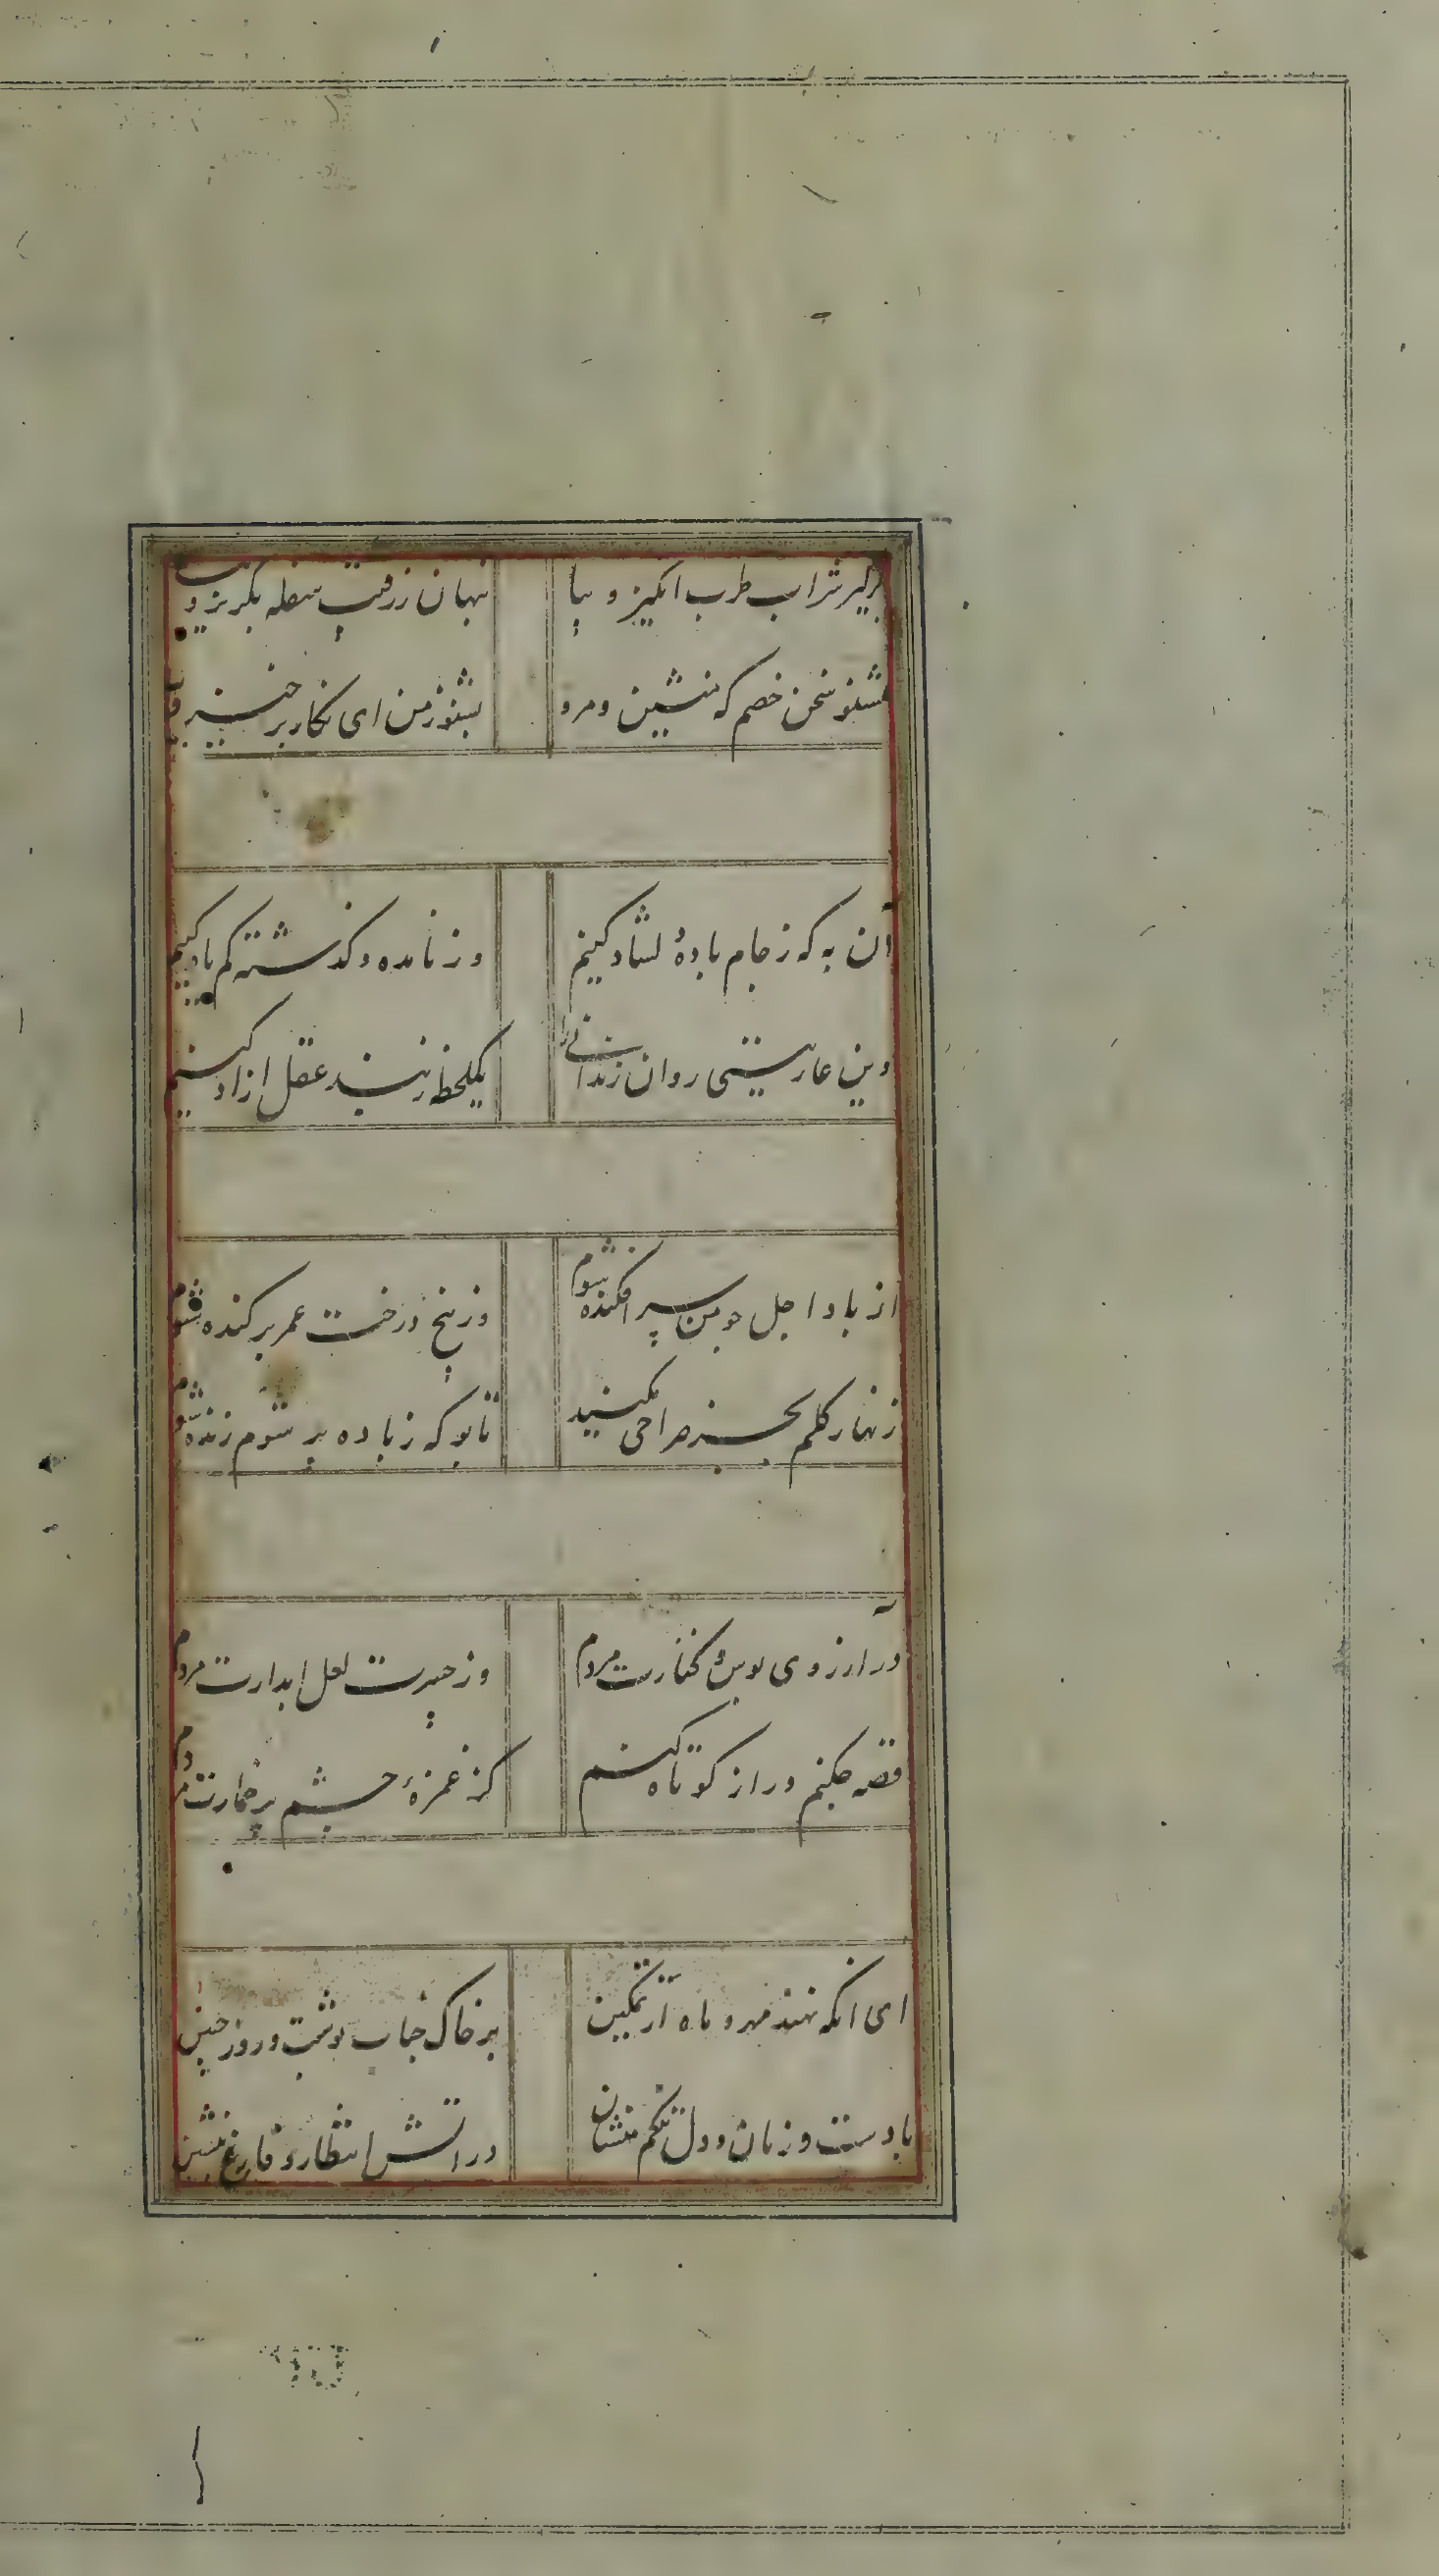 برگیر شراب طرب انگیز و بیا پنهان ز رقیب سفله بگریز و بیا
مشنو سخن خصم که منشین و مرو بشنو ز من ای نگار برخیز و بیا
آن به که ز جام بادهٔ لشاد کنیم وز نامده و گذشته کم یاد کنیم
وین عاریتی روان زندانی را یکلحظه ز بند عقل ازاد کنیم
از باد اجل چو من سر افکنده شوم وز بیخ درخت عمر بر کنده شوم
زنهار گلم بجز صراحی مکنید تا بو که ز باده پر شوم زنده شوم
در ارزوی بوس و کنارت مردم وز حسرت لعل ابدارت مردم
قصه چکنم دراز کوتاه کنم کز غمزهٔ چشم پر خمارت مردم
ای انکه نهند مهر و ماه از تمکین بر خاک جناب تو شب و روز جبین
با دست و زبان و دل تنگم منشان در اتش انتظار و فارغ منشین